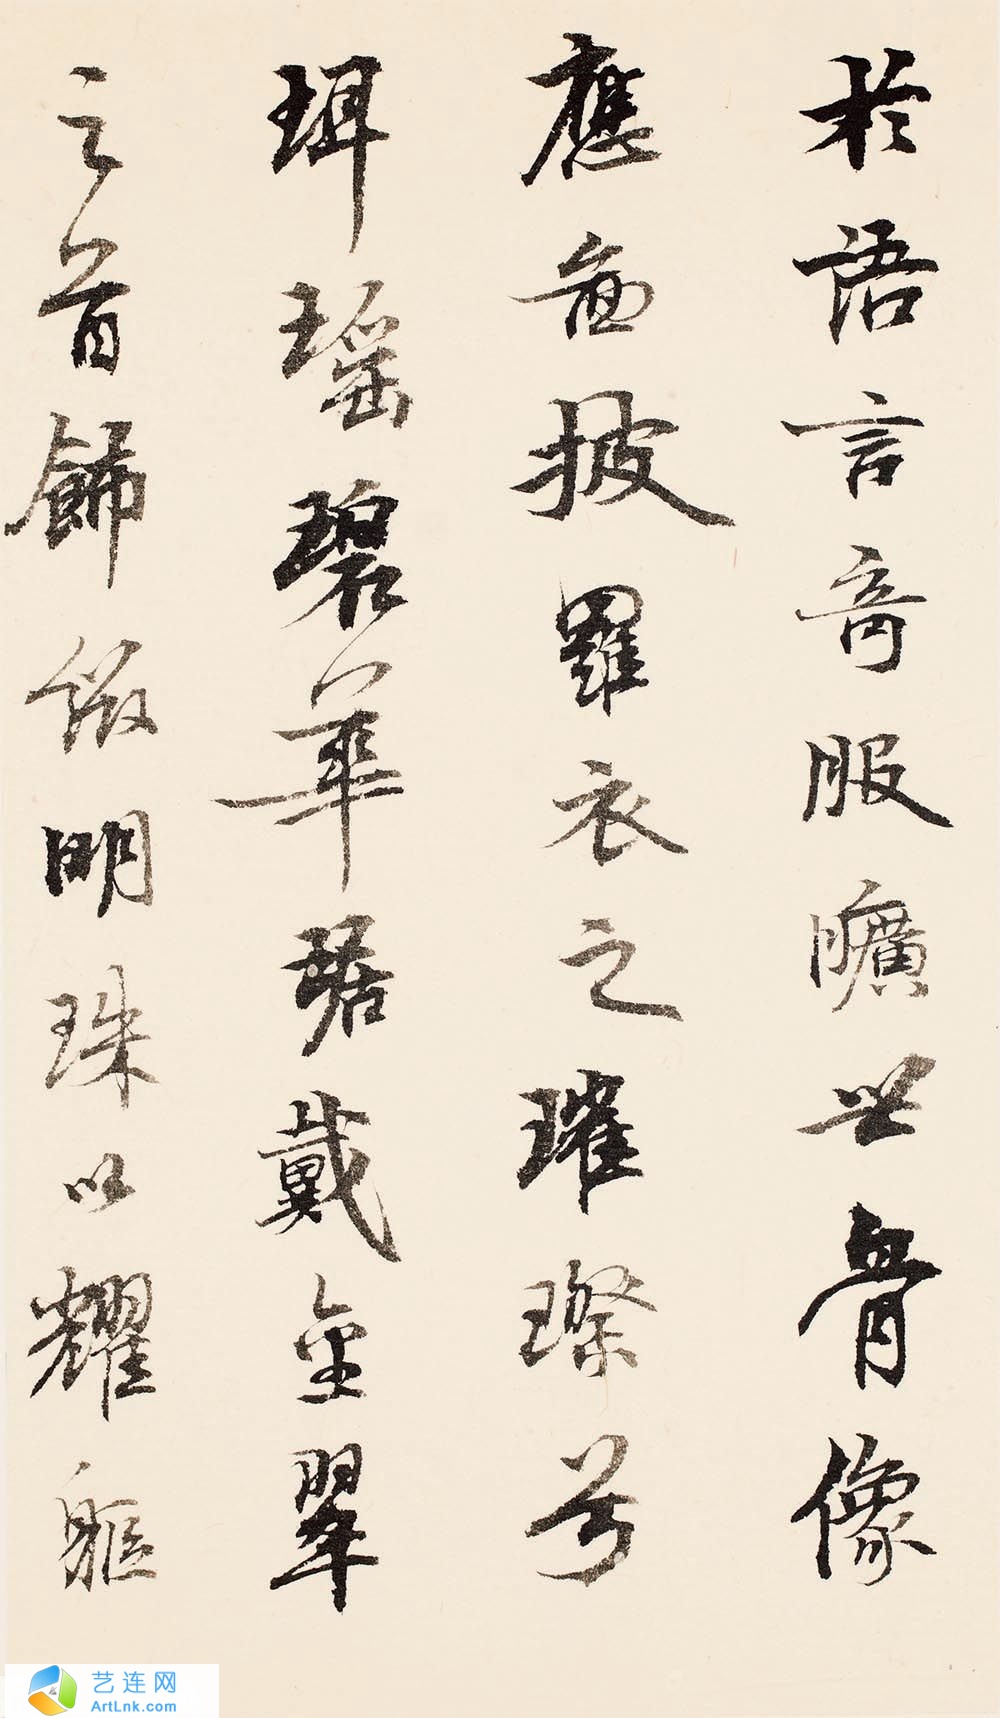 於語言奇服曠世骨像
應畫披羅衣之璀璨兮
珥瑶碧華琚戴金翠
之首飾綴明珠以耀軀
艺连网
ArtLnk.com